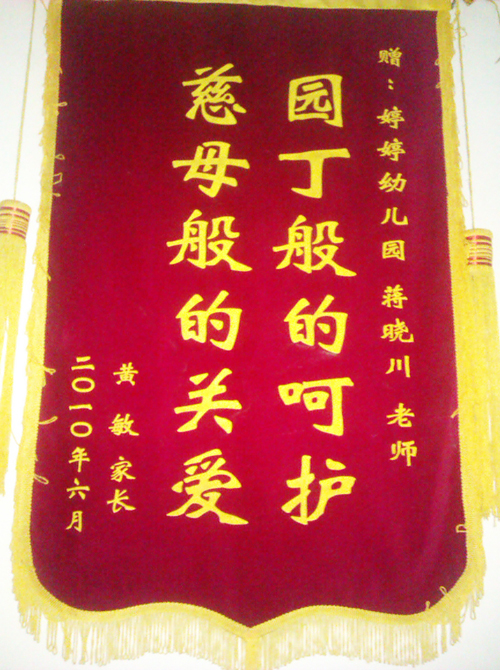 赠：婷婷幼儿园 蒋晓川 老师
园丁般的呵护
慈母般的关爱
黄敏家长
二〇一〇年六月